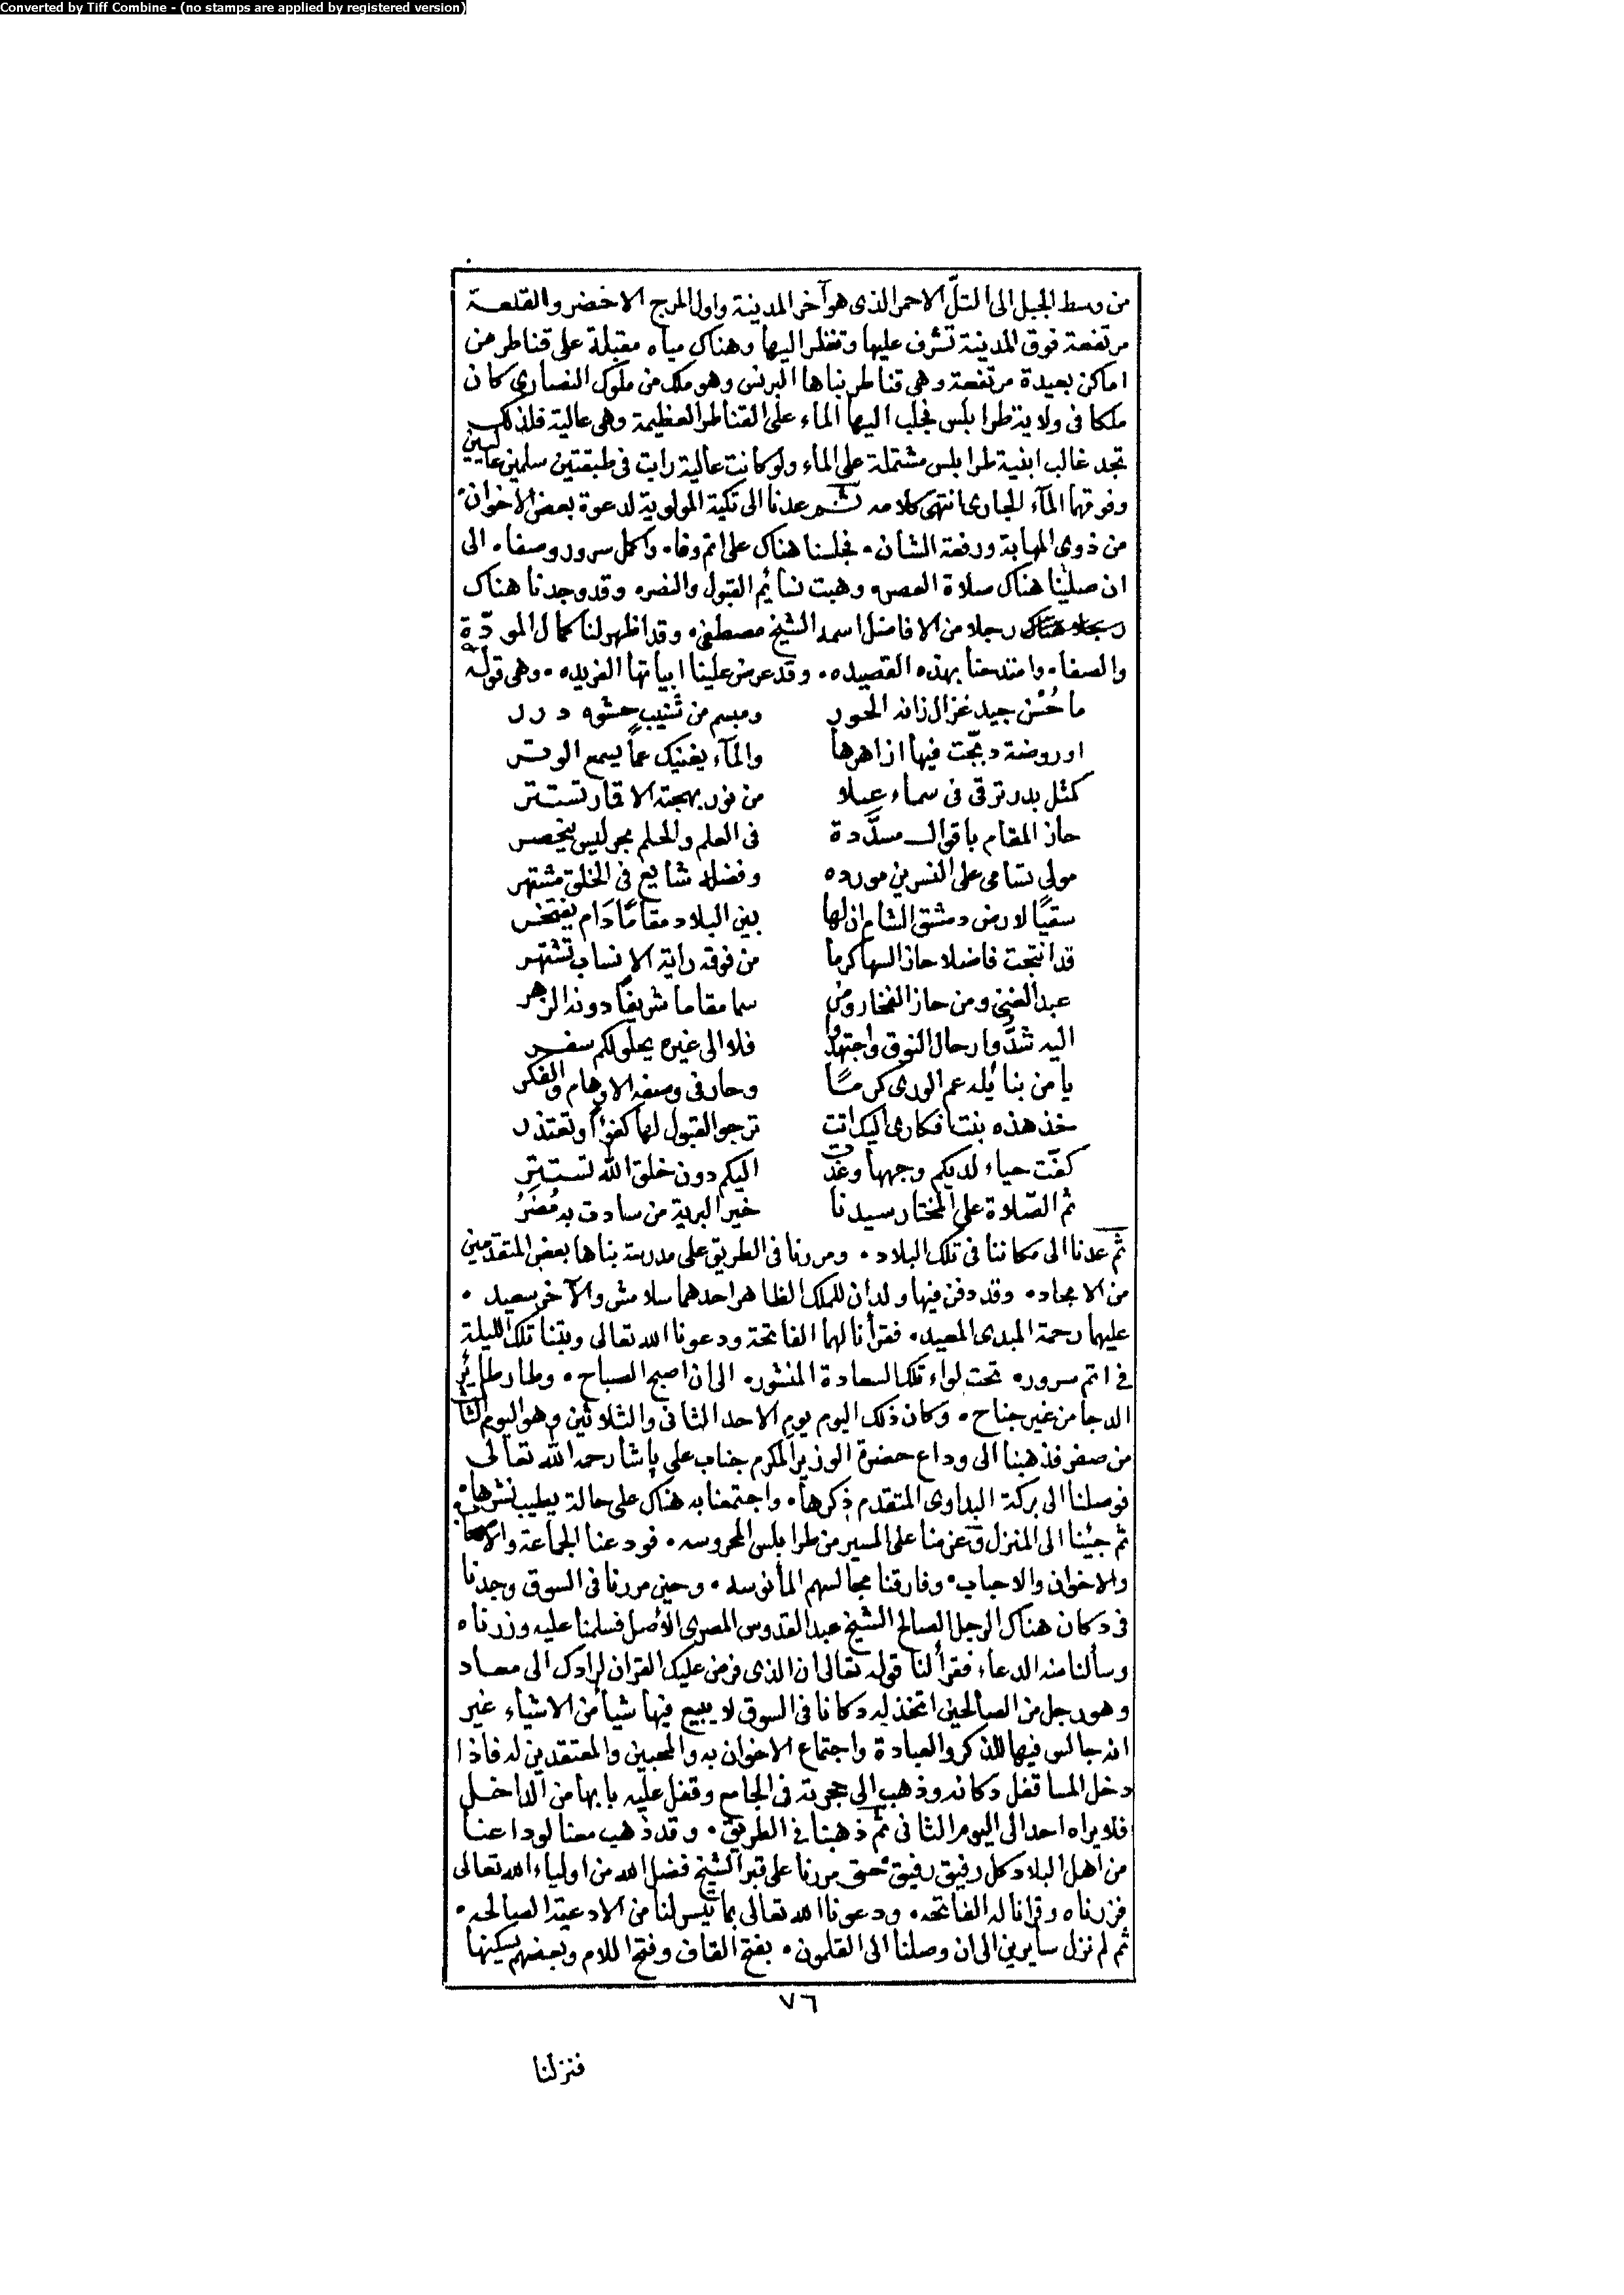 Converted by Tiff Combine - (no stamps are applied by registered version)
من وسط الجبل الى التلّ الاحمر الذى هو آخر المدينة واول المرج الاخضر والقلعة
مرتفعة فوق المدينة تشرف عليها وتنظر اليها وهناك مياه مقبلة على قناطر من
اماكن بعيدة مرتفعة وهى قناطر بناها البرنس وهو ملك من ملوك النصارى كان
ملكا فى ولاية طرابلس فجلب اليها الماء على القناطر العظيمة وهى عالية فلذلك
تجد غالب ابنية طرابلس مشتملة على الماء ولو كانت عالية رايت فى طبقتين
وفوقها المآء الجارى انتهى كلامه ثم عدنا الى تكية المولوية لدعوة بعض الاخوان
من ذوى المهابة ورفعة الشان ٠ فجلسنا هناك على اتم وفا ٠ واكمل سرور وصفا ٠ الى
ان صلينا هناك صلاة العصر ٠ وهبت نسائم القبول والنصر ٠ وقد وجدنا هناك
رجلا من الافاضل اسمه الشيخ مصطفى ٠ وقد اظهر لنا كمال المودّة
والصفا ٠ وامتدحنا بهذه القصيده ٠ وقد عرض علينا ابياتها الفريده ٠ وهى قوله
ما حُسْن جيد غزال زانه الحور ومبسم من شنيب حشوه درر
او روضة دبّجت فيها ازاهرها والمآء يغنيك عما يسمع الوتر
كمثل بدر ترقى فى سماء عِلا من نور بهجته الاقمار تستتر
حاز المقام باقوال مسدَّدة فى العلم والحلم بحر ليس ينحصر
مولى تسامى على النسرين مورده وفضله شايع فى الخلق مشتهر
سقيًا لارض دمشق الشام ان لها بين البلاد مقامًا دَام يفتخر
قد انتجت فاضلا حاز السها كرما من فوقه راية الانساب تشتهر
عبد الغنى ومن حاز الفخار ومن سما مقاما شريفًا دونه الزهر
اليه شدُّوا رحال النوق واجتهدوا فلا الى غيره يحلو لكم سفر
يا من بنائله عم الورى كرمًا وحار فى وصفه الاوهام والفكر
خذ هذه بنت افكارى اليك اتت ترجو القبول لها كفؤًا وتعتذر
كفّت حياء لديكم وجهها وغدت اليكم دون خلق الله تستتر
ثم الصّلاة على المختار سيدنا خير البرية من سادت به مُضَرُ
ثم عدنا الى مكاننا فى تلك البلاد ٠ ومررنا فى الطريق على مدرسة بناها بعض المتقدّمين
من الامجاد ٠ وقد دفن فيها ولدان للملك الظاهر احدهما سلامش والآخر سعيد ٠
عليهما رحمة المبدى المعيد ٠ فقرأنا لهما الفاتحة ودعونا الله تعالى وبتنا تلك الليلة
فى اتم سرور ٠ تحت لواء تلك السعادة المنشور ٠ الى ان اصبح الصباح ٠ وطار طائر
الدجا من غير جناح ٠ وكان ذلك اليوم يوم الاحد الثانى والثلاثين وهو اليوم
من صفر فذهبنا الى وداع حضرة الوزير المكرم جناب على باشا رحمه الله تعالى
فوصلنا الى بركة البداوى المتقدم ذكرها ٠ واجتمعنا به هناك على حالة يطيب نشرها ٠
ثم جئنا الى المنزل وعزمنا على المسير من طرابلس المحروسه ٠ فودعنا الجماعة
والاخوان والاحباب ٠ وفارقنا مجالسهم المأنوسه ٠ وحين مررنا فى السوق وجدنا
فى دكان هناك الرجل الصالح الشيخ عبد القدوس المصرى الأصل فسلمنا عليه وزرناه
وسألنا منه الدعاء فقرأ لنا قوله تعالى ان الذى فرض عليك القران لرادك الى معاد
وهو رجل من الصالحين اتخذ له دكانا فى السوق لا يبيع فيها شيأ من الاشياء غير
انه جالس فيها للذكر والعبادة واجتماع الاخوان به والمحبين والمعتقدين له فاذا
دخل المسا قفل دكانه وذهب الى حجرته فى الجامع وقفل عليه بابها من الداخل
فلا يراه احد الى اليوم الثانى ثم ذهبنا فى الطريق ٠ وقد ذهب معنا لوداعنا
من اهل البلاد كل رفيق رفيق حتى مررنا على قبر الشيخ فضل الله من اولياء الله تعالى
فزرناه وقرانا له الفاتحه ٠ ودعونا الله تعالى بما تيسر لنا من الادعية الصالحه ٠
ثم لم نزل سايرين الى ان وصلنا الى القلمون ٠ بفتح القاف وفتح اللام وبعضهم يسكنها
٧٦
فنزلنا